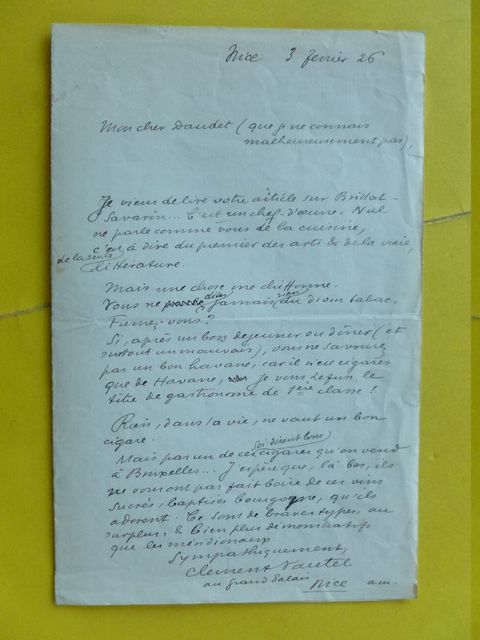 Nice 3 fevrier 26
Mon cher Daudet (que je ne connais
malheureusement pas),
Je viens de lire votre article sur Brillat-
Savarin... C'est un chef-d'œuvre. Nul
ne parle comme vous de la cuisine,
c'est à dire du premier des arts & de la vraie,
de la seule
littérature.
Mais une chose me chiffonne.
Vous ne dites jamais rien du divin tabac.
Fumez-vous?
Si, après un bon dejeuner ou diner (et
surtout un mauvais), vous ne savourez
pas un bon havane, car il n'est cigares
que de Havane, je vous refuse le
titre de gastronome de 1ère classe!
Rien, dans la vie, ne vaut un bon
cigare.
soi disant bons
Mais pas un de ces cigares qu'on vend
à Bruxelles... J'espère que, là bas, ils
ne vous ont pas fait boire de ces vins
sucrés, baptisés bourgogne, qu'ils
adorent. Ce sont de braves types, au
surplus, & bien plus démonstratifs
que les méridionaux.
Sympathiquement,
Clément Vautel
au Grand Palais
Nice a.m.